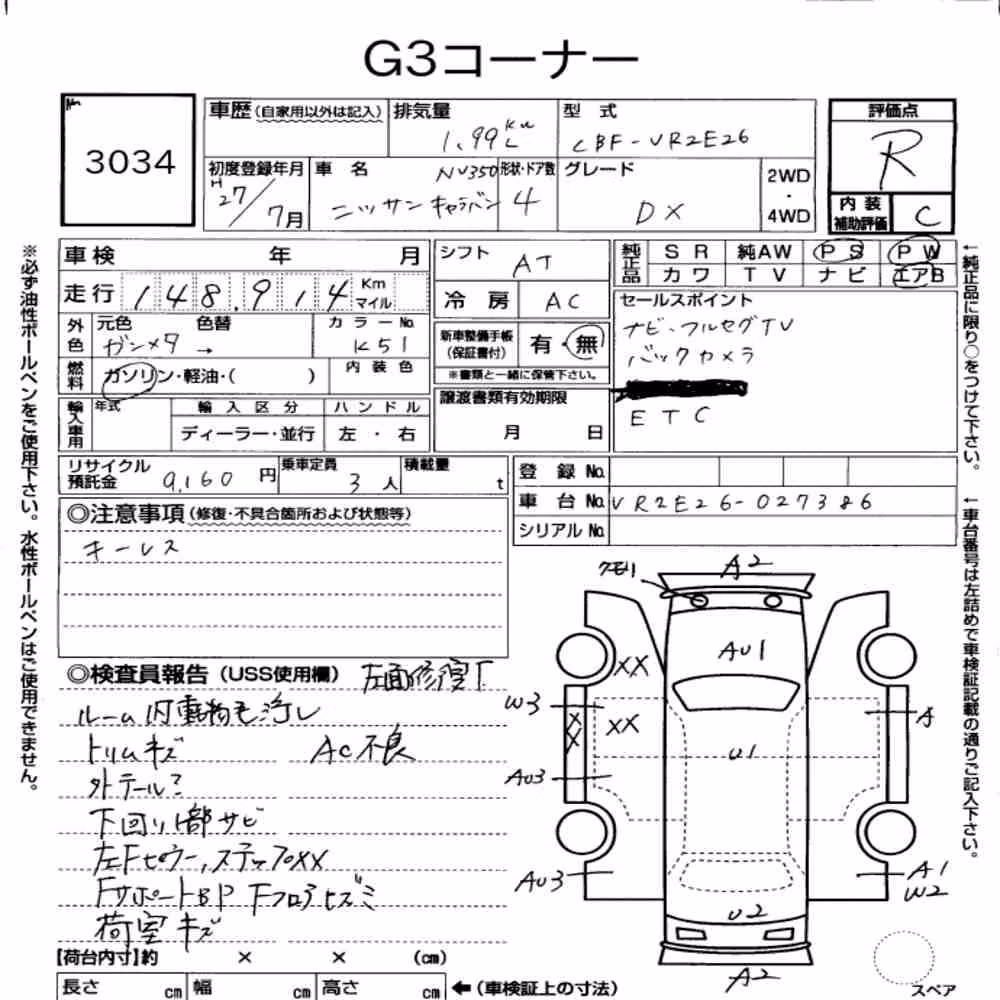 G3コーナー
No. 3034
車歴(自家用以外は記入) 排気量 1.99 型式 CBF-VR2E26
評価点 R
内装補助評価 C
初度登録年月 H27/7月
車名 NV350 ニッサン キャラバン
形状・ドア数 4
グレード DX
2WD・4WD
車検 年 月
走行 148.914 Km マイル
シフト AT
冷房 AC
純正品 SR 純AW PS PW
カワ TV ナビ エアB
外色 元色 ガンメタ 色替 → カラーNo. K51
燃料 ガソリン・軽油・( ) 内装色
新車整備手帳(保証書付) 有・無
※書類と一緒に保管下さい。
セールスポイント
ナビ・フルセグTV
バックカメラ
ETC
輸入車用 年式 輸入区分 ハンドル
ディーラー・並行 左・右
譲渡書類有効期限
月 日
リサイクル預託金 9,160 円 乗車定員 3人 積載量 t
登録No.
車台No. VR2E26-027386
シリアルNo.
◎注意事項(修復・不具合箇所および状態等)
キーレス
◎検査員報告(USS使用欄) 左面修复下
ルーム内動物毛浮し
トリムキズ AC不良
外テール?
下回り1部サビ
左Fピラー,ステップXX
FサポートBP Fフロアヒズミ
荷室キズ
【荷台内寸】約 × × (cm)
長さ cm 幅 cm 高さ cm ←(車検証上の寸法)
クモリ A2
AU1
XX
W3 XX XX A
U1
AU3
AU3 A1 W2
U2
A2
スペア
※必ず油性ボールペンをご使用下さい。水性ボールペンはご使用できません。
←純正品に限り○をつけて下さい。
←車台番号は左詰めで車検証記載の通りご記入下さい。